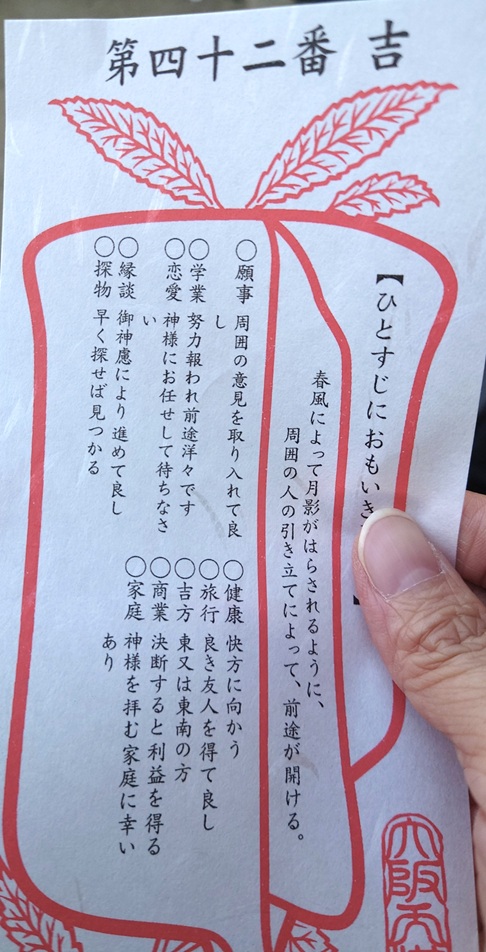 第四十二番 吉
【ひとすじにおもいき
春風によって月影がはらされるように、
周囲の人の引き立てによって、前途が開ける。
○願事 周囲の意見を取り入れて良
し
○学業 努力報われ前途洋々です
○恋愛 神様にお任せして待ちなさ
い
○縁談 御神慮により進めて良し
○探物 早く探せば見つかる
○健康 快方に向かう
○旅行 良き友人を得て良し
○吉方 東又は東南の方
○商業 決断すると利益を得る
○家庭 神様を拝む家庭に幸い
あり
大阪天